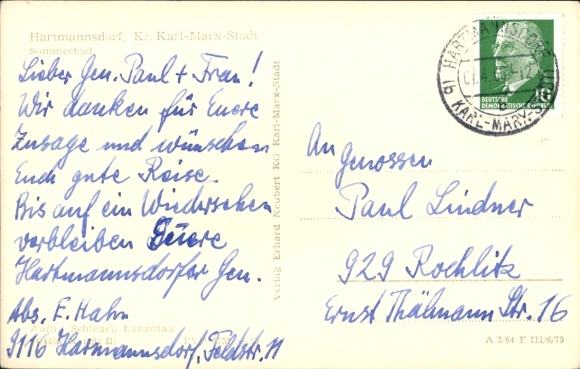 Hartmannsdorf, Kr. Karl-Marx-Stadt
Sommerbad
Lieber Gen. Paul + Frau!
Wir danken für Euere
Zusage und wünschen
Euch gute Reise.
Bis auf ein Wiedersehen
verbleiben Euere
Hartmannsdorfer Gen.
Abs. E. Hahn
9116 Harmannsdorf, Feldstr. 11
Aufn. Schlegel, Lunzenau
Verlag Erhard Neubert KG Karl-Marx-Stadt
HARTMANNSDORF
KARL-MARX-STADT
10
DEUTSCHE
DEMOKRATISCHE REPUBLIK
An
Genossen
Paul Lindner
929 Rochlitz
Ernst Thälmann Str. 16
A 3/64 F III/6/75